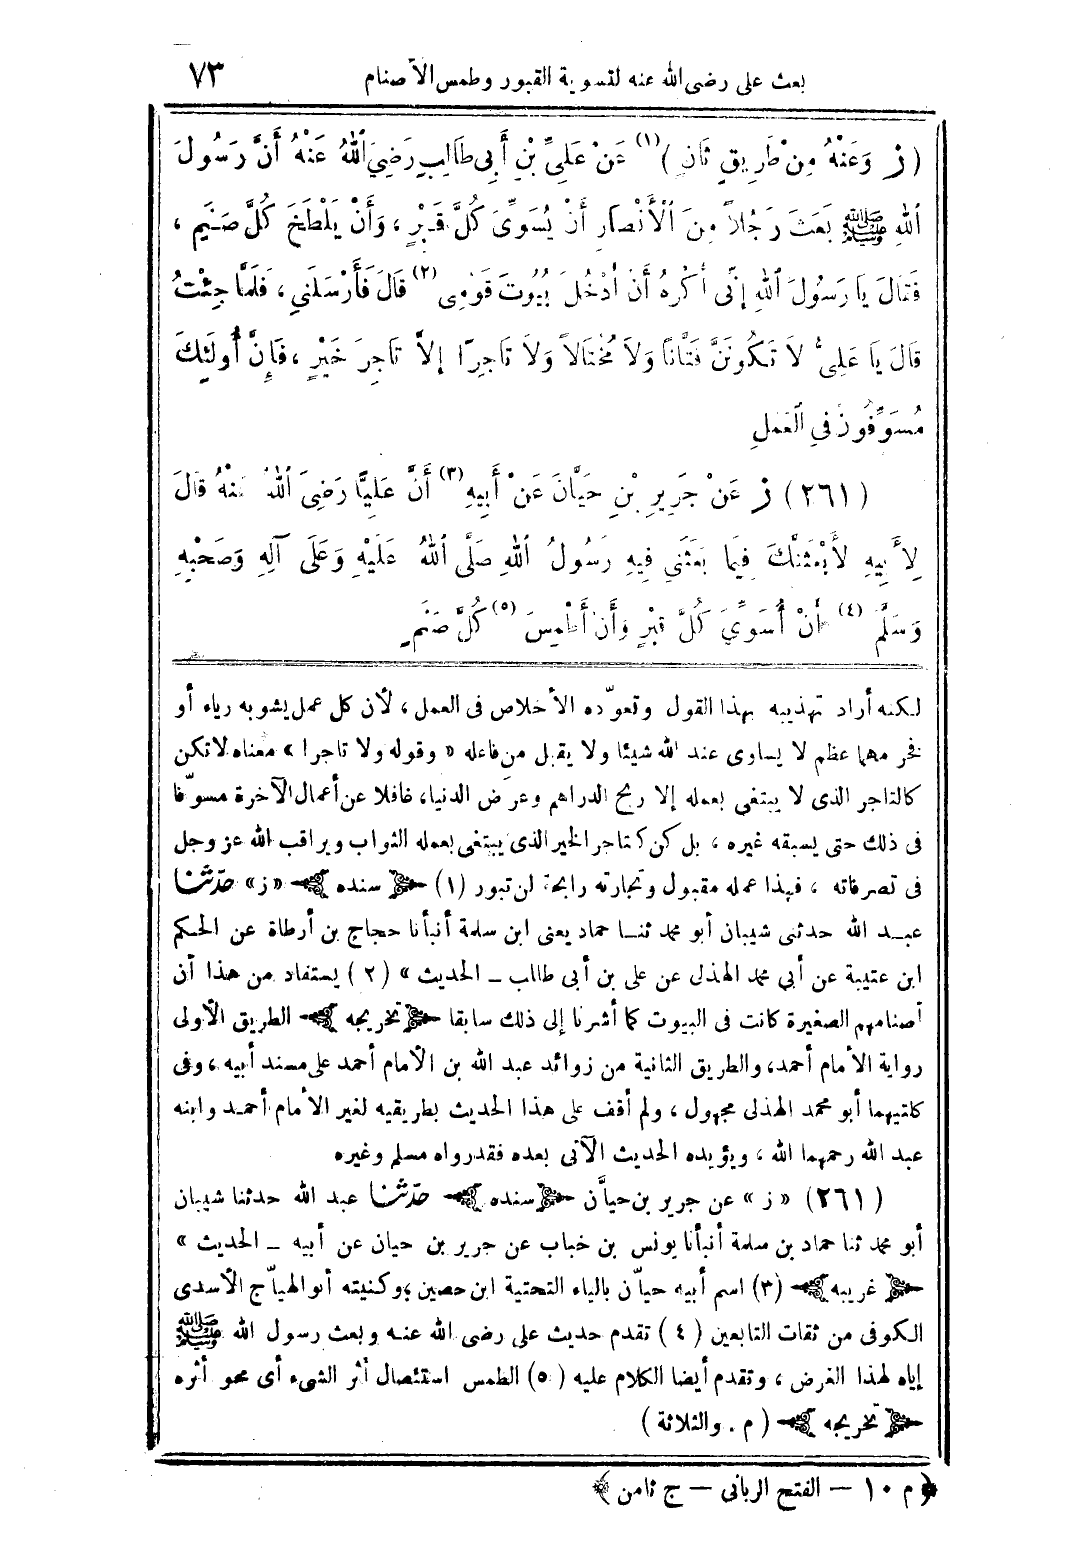 بعث على رضى الله عنه لتسوية القبور وطمس الأصنام ٧٣
( ز وَعَنْهُ مِنْ طَرِيقٍ ثَانٍ ) (١) عَنْ عَلِيِّ بْنِ أَبِي طَالِبٍ رَضِيَ اللهُ عَنْهُ أَنَّ رَسُولَ
اللهِ ﷺ بَعَثَ رَجُلاً مِنَ الْأَنْصَارِ أَنْ يُسَوِّىَ كُلَّ قَبْرٍ ، وَأَنْ يَلْطَخَ كُلَّ صَنَمٍ ،
فَقَالَ يَا رَسُولَ اللهِ إِنِّى أَكْرَهُ أَنْ أَدْخُلَ بُيُوتَ قَوْمِى (٢) قَالَ فَأَرْسَلَنِي ، فَلَمَّا جِئْتُ
قَالَ يَا عَلِىُّ لاَ تَكُونَنَّ فَتَّاناً وَلاَ مُخْتَالاً وَلاَ تَاجِرًا إِلاَّ تَاجِرَ خَيْرٍ ، فَإِنَّ أُولَئِكَ
مُسَوِّفُونَ فِي الْعَمَلِ
( ٢٦١ ) ز عَنْ جَرِيرِ بْنِ حَيَّانَ عَنْ أَبِيهِ (٣) أَنَّ عَلِيًّا رَضِيَ اللهُ عَنْهُ قَالَ
لِأَبِيهِ لأَبْعَثَنَّكَ فِيمَا بَعَثَنِي فِيهِ رَسُولُ اللهِ صَلَّى اللهُ عَلَيْهِ وَعَلَى آلِهِ وَصَحْبِهِ
وَسَلَّمَ (٤) أَنْ أُسَوِّيَ كُلَّ قَبْرٍ وَأَنْ أَطْمِسَ (٥) كُلَّ صَنَمٍ
لكنه أراد تهذيبه بهذا القول وتعوّده الأخلاص فى العمل ، لأن كل عمل يشوبه رياء أو
فخر مهما عظم لا يساوى عند الله شيئا ولا يقبل من فاعله « وقوله ولا تاجرا » معناه لاتكن
كالتاجر الذى لا يبتغى بعمله إلا ربح الدراهم وعرض الدنيا، غافلا عن أعمال الآخرة مسوّفا
فى ذلك حتى يسبقه غيره ، بل كن كتاجر الخير الذى يبتغى بعمله الثواب ويراقب الله عز وجل
فى تصرفاته ، فهذا عمله مقبول وتجارته رابحة لن تبور (١) سنده « ز » حدّثنا
عبد الله حدثنى شيبان أبو محمد ثنا حماد يعنى ابن سلمة أنبأنا حجاج بن أرطاة عن الحكم
ابن عتيبة عن أبي محمد الهذلى عن على بن أبى طالب ـ الحديث » ( ٢ ) يستفاد من هذا أن
أصنامهم الصغيرة كانت فى البيوت كما أشرنا إلى ذلك سابقا تخريجه الطريق الأولى
رواية الأمام أحمد، والطريق الثانية من زوائد عبد الله بن الأمام أحمد على مسند أبيه ، وفى
كلتيهما أبو محمد الهذلى مجهول ، ولم أقف على هذا الحديث بطريقيه لغير الأمام أحمد وابنه
عبد الله رحمهما الله ، ويؤيده الحديث الآتى بعده فقدرواه مسلم وغيره
( ٢٦١ ) « ز » عن جرير بن حيَّان سنده حدّثنا عبد الله حدثنا شيبان
أبو محمد ثنا حماد بن سلمة أنبأنا يونس بن خباب عن جرير بن حيان عن أبيه ـ الحديث »
غريبه (٣) اسم أبيه حيّان بالياء التحتية ابن حصين ؛ وكنيته أبو الهيّاج الأسدى
الكوفى من ثقات التابعين ( ٤ ) تقدم حديث على رضى الله عنه وبعث رسول الله ﷺ
إياه لهذا الغرض ، وتقدم أيضا الكلام عليه ( ٥ ) الطمس استئصال أثر الشىء أى محو أثره
تخريجه ( م . والثلاثة )
﴿ م ١٠ — الفتح الربانى — ج ثامن ﴾